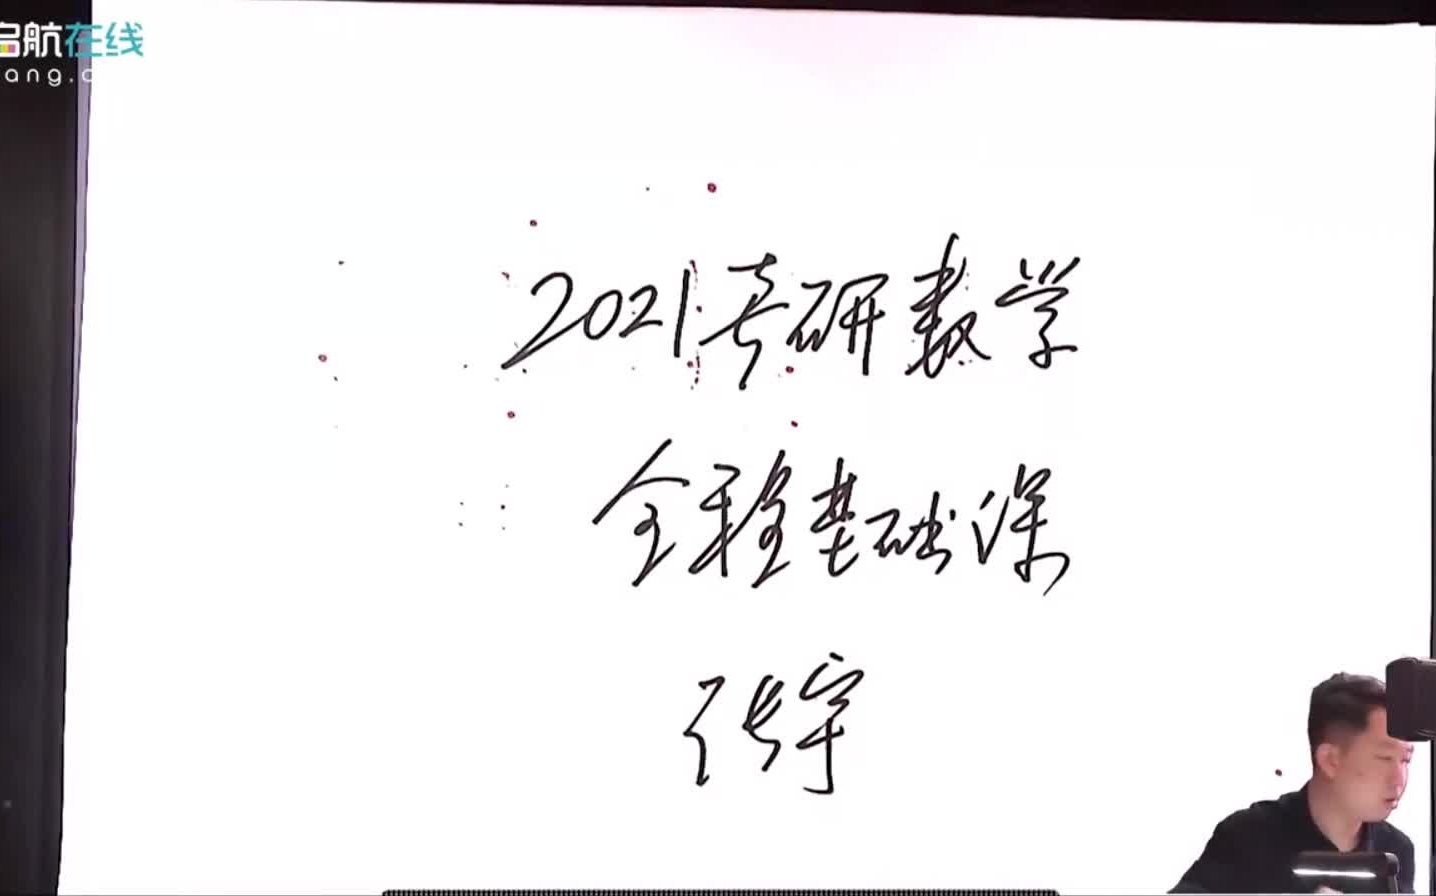 启航在线
ang.c
2021考研数学
全程基础课
张宇